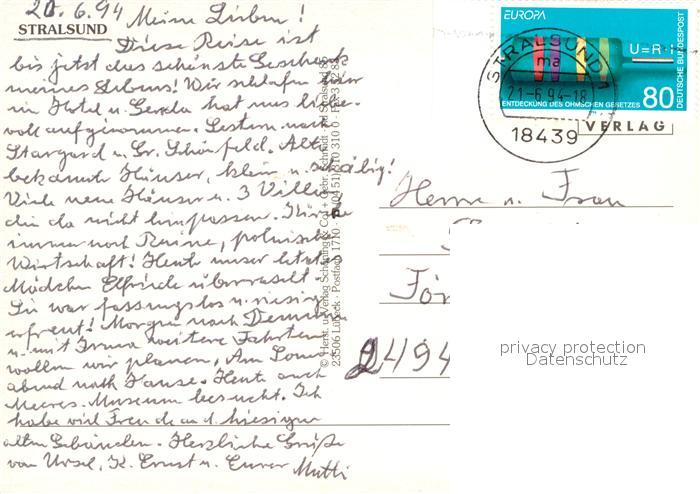 20.6.94 Meine Lieben!
STRALSUND
Diese Reise ist
bis jetzt das schönste Geschenk
meines Lebens! Wir schlafen hier
im Hotel u. Gerda hat uns liebe-
voll aufgenommen. Gestern nach
Stargard u. Gr. Schönfeld. Alt-
bekannte Häuser, klein u. schäbig!
Viele neue Häuser u. 3 Villen
die da nicht hinpassen. Kirche
immer noch Ruine, polnische
Wirtschaft! Heute unser letztes
Mädchen Elfriede überrascht.
Sie war fassungslos u. riesig
erfreut! Morgen nach Demmin
u. mit Irma weitere Fahrten
wollen wir planen. Am Sonn-
abend nach Hause. Heute auch
Meeres-Museum besucht. Ich
habe viel Freude an d. hiesigen
alten Gebäuden. Herzliche Grüße
von Ursel, K. Ernst u. Eurer Mutti
© Herst. u. Verlag Schöning & Co + Gebr. Schmidt
23506 Lübeck · Postfach 1710
EUROPA
U=R·I
DEUTSCHE BUNDESPOST
ENTDECKUNG DES OHMSCHEN GESETZES 80
STRALSUND 1
ma
21.-6.94-18
18439
VERLAG
Herrn u. Frau
2494
privacy protection
Datenschutz